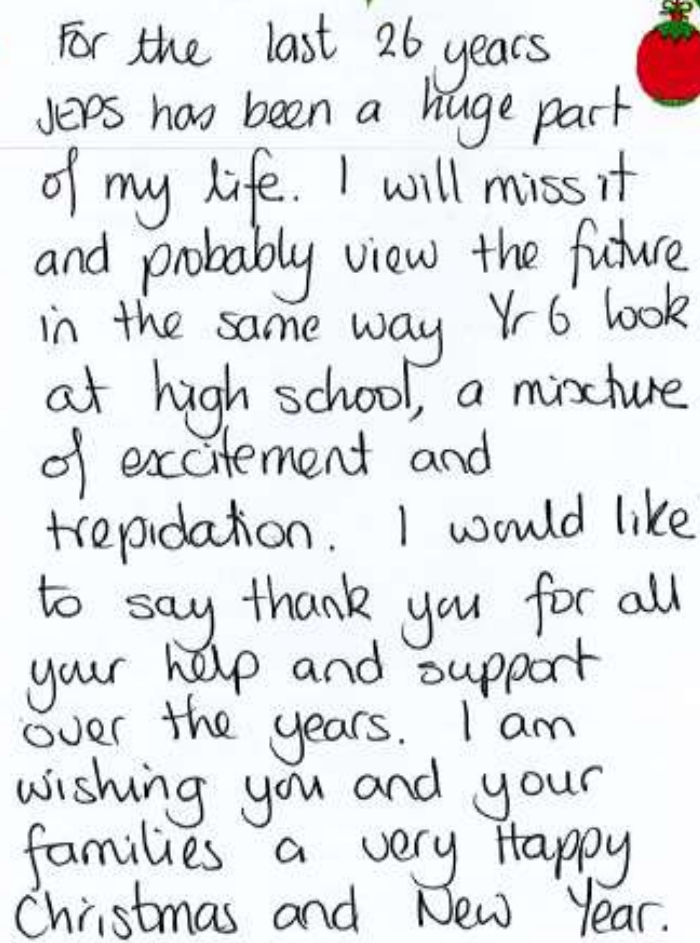 For the last 26 years
JEPS has been a huge part
of my life. I will miss it
and probably view the future
in the same way Yr 6 look
at high school, a mixture
of excitement and
trepidation. I would like
to say thank you for all
your help and support
over the years. I am
wishing you and your
families a very Happy
Christmas and New Year.